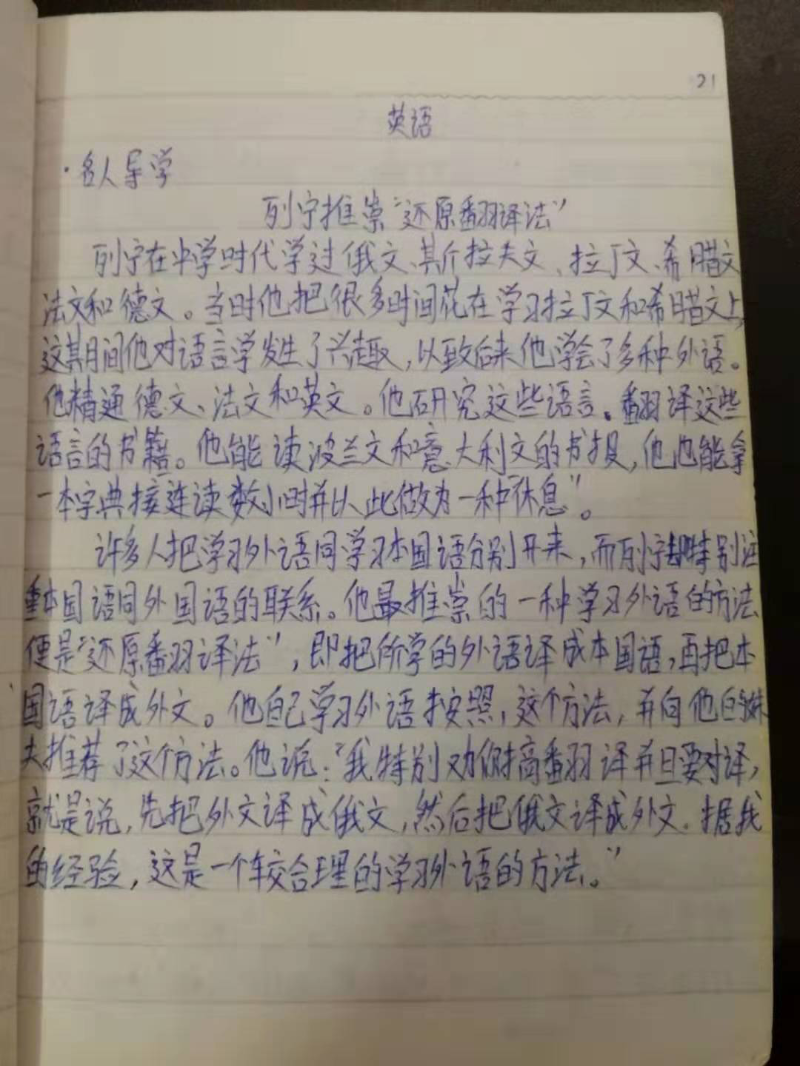 21
英语
·名人导学
列宁推崇"还原翻译法"
列宁在中学时代学过俄文、其斤拉夫文、拉丁文、希腊文
法文和德文。当时他把很多时间花在学习拉丁文和希腊文上,
这其月间他对语言学发生了兴趣,以致后来他学会了多种外语。
他精通德文、法文和英文。他研究这些语言。翻译这些
语言的书籍。他能读波兰文和意大利文的书报,他也能拿
一本字典接连读数小时并以此做为一种"休息"。
许多人把学习外语同学习本国语分别开来,而列宁却特别注
重本国语同外国语的联系。他最推崇的一种学习外语的方法
便是"还原翻译法",即把所学的外语译成本国语,再把本
国语译成外文。他自己学习外语按照,这个方法,并向他的妹
夫推荐了这个方法。他说:"我特别劝你搞翻译并且要对译,
就是说,先把外文译成俄文,然后把俄文译成外文。据我
的经验,这是一个较合理的学习外语的方法。"